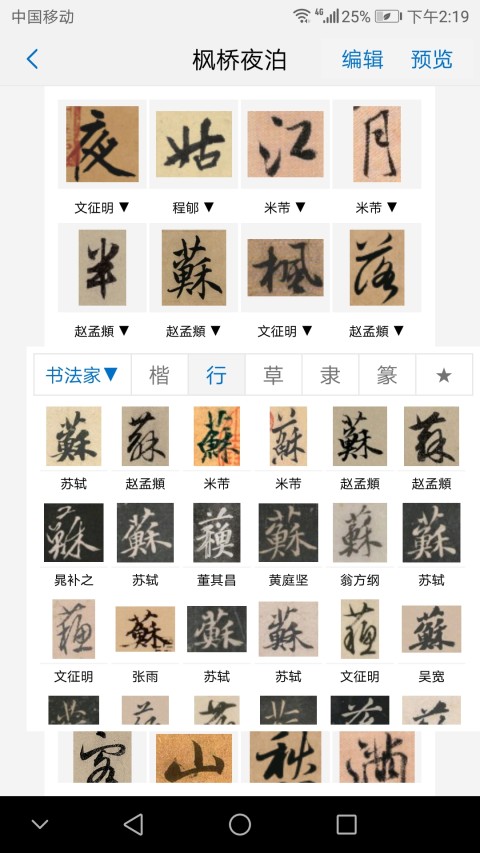 中国移动 4G 25% 下午2:19
枫桥夜泊 编辑 预览
夜 姑 江 月
文征明▼ 程郇▼ 米芾▼ 米芾▼
半 蘇 楓 落
赵孟頫▼ 赵孟頫▼ 文征明▼ 赵孟頫▼
书法家▼ 楷 行 草 隶 篆 ★
蘇 蘇 蘇 蘇 蘇 蘇
苏轼 赵孟頫 米芾 米芾 赵孟頫 赵孟頫
蘇 蘇 蘇 蘇 蘇 蘇
晁补之 苏轼 董其昌 黄庭坚 翁方纲 苏轼
蘇 蘇 蘇 蘇 蘇 蘇
文征明 张雨 苏轼 苏轼 文征明 吴宽
客 山 秋 满